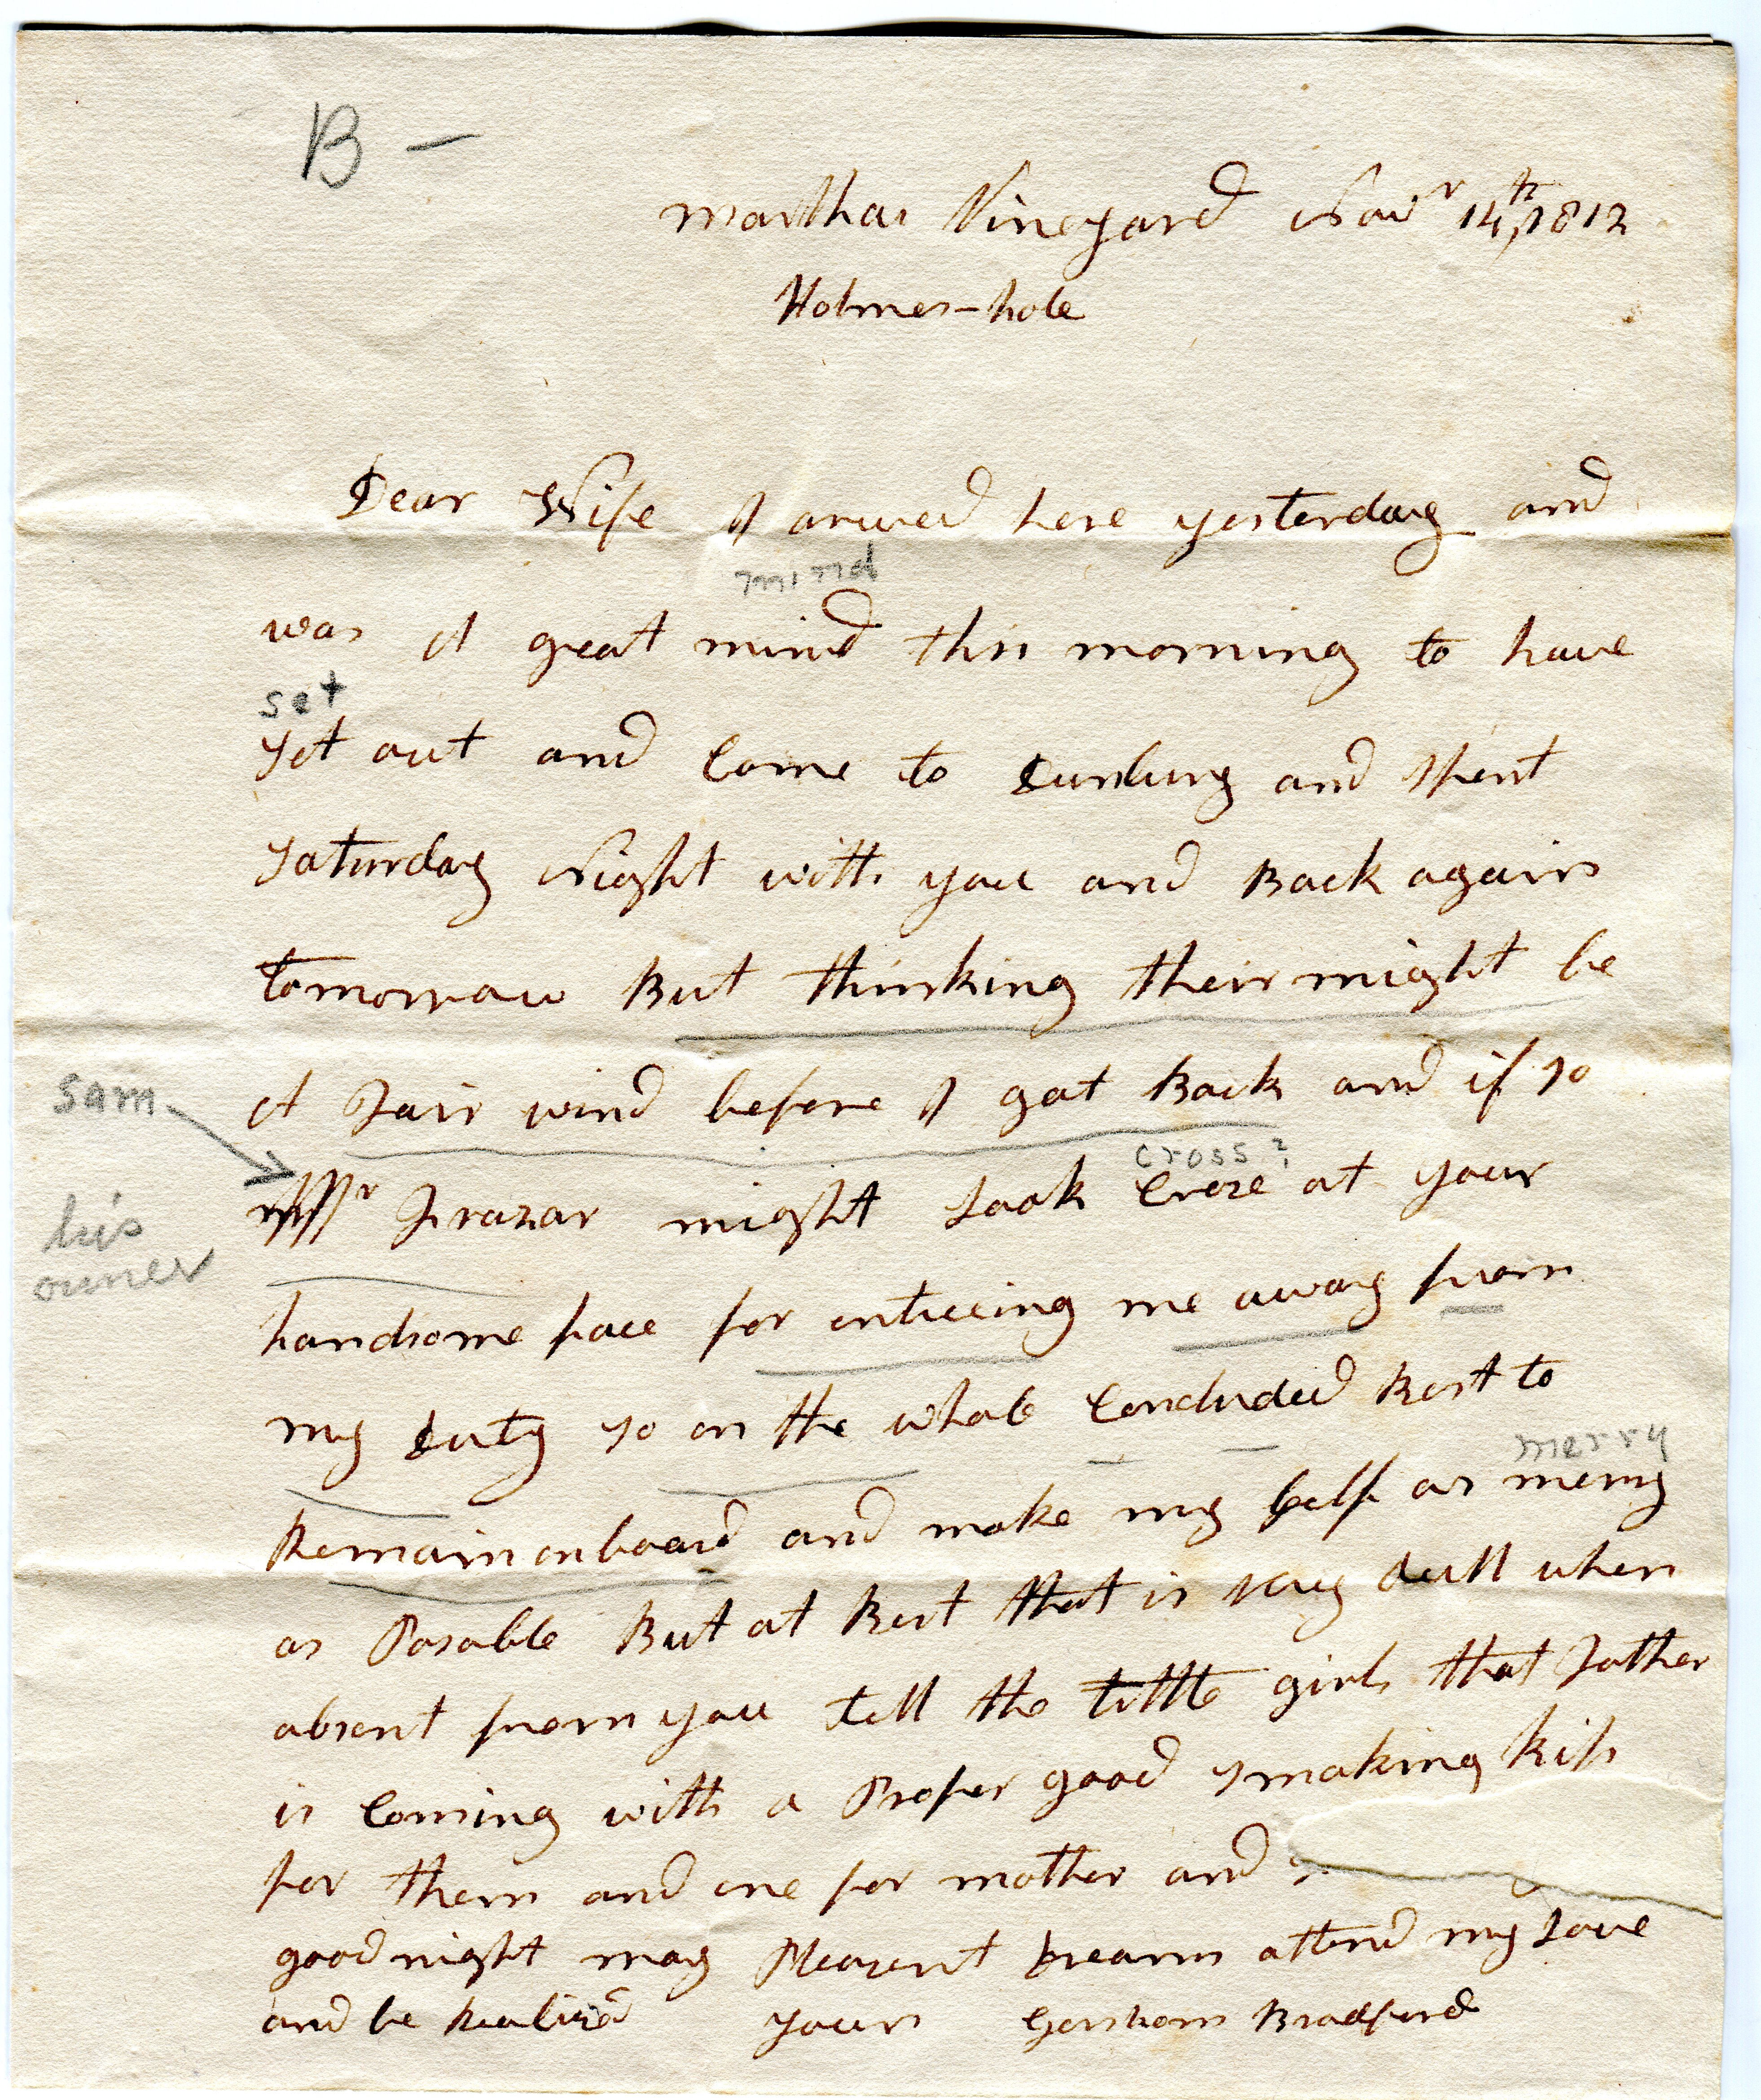 B —
marthas Vineyard Novr 14th, 1812
Holmes-hole
Dear Wife I arived here yesterday and
mind
was A great mind this morning to have
set
set out and Come to Duxbury and spent
saturday Night with you and Back again
tomorrow But thinking their might be
A Fair wind before I got Back and if so
sam
cross?
Mr Frazar might Look Croze at your
his
owner
handsome face for enticeing me away from
my Duty so on the whole Concluded Best to
merry
Remain onboard and make my self as merry
as Posable But at Best that is very dull when
absent from you tell the little girls that Father
is Coming with a Proper good smaking kiss
for them and one for mother and
good night may Pleasent Dreams attend my Love
and be Realized yours Gershom Bradford